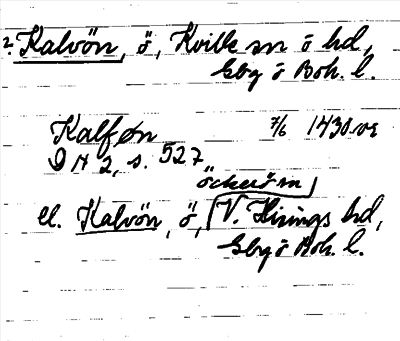 2. Kalvön, ö, Kville sn ö hd,
Gbg ö Boh. l.
Kalføn 7/6 1430
D N 2, s. 527
öckerö sn
el. Kalvön, ö, V. Hisings hd,
Gbg ö Boh. l.